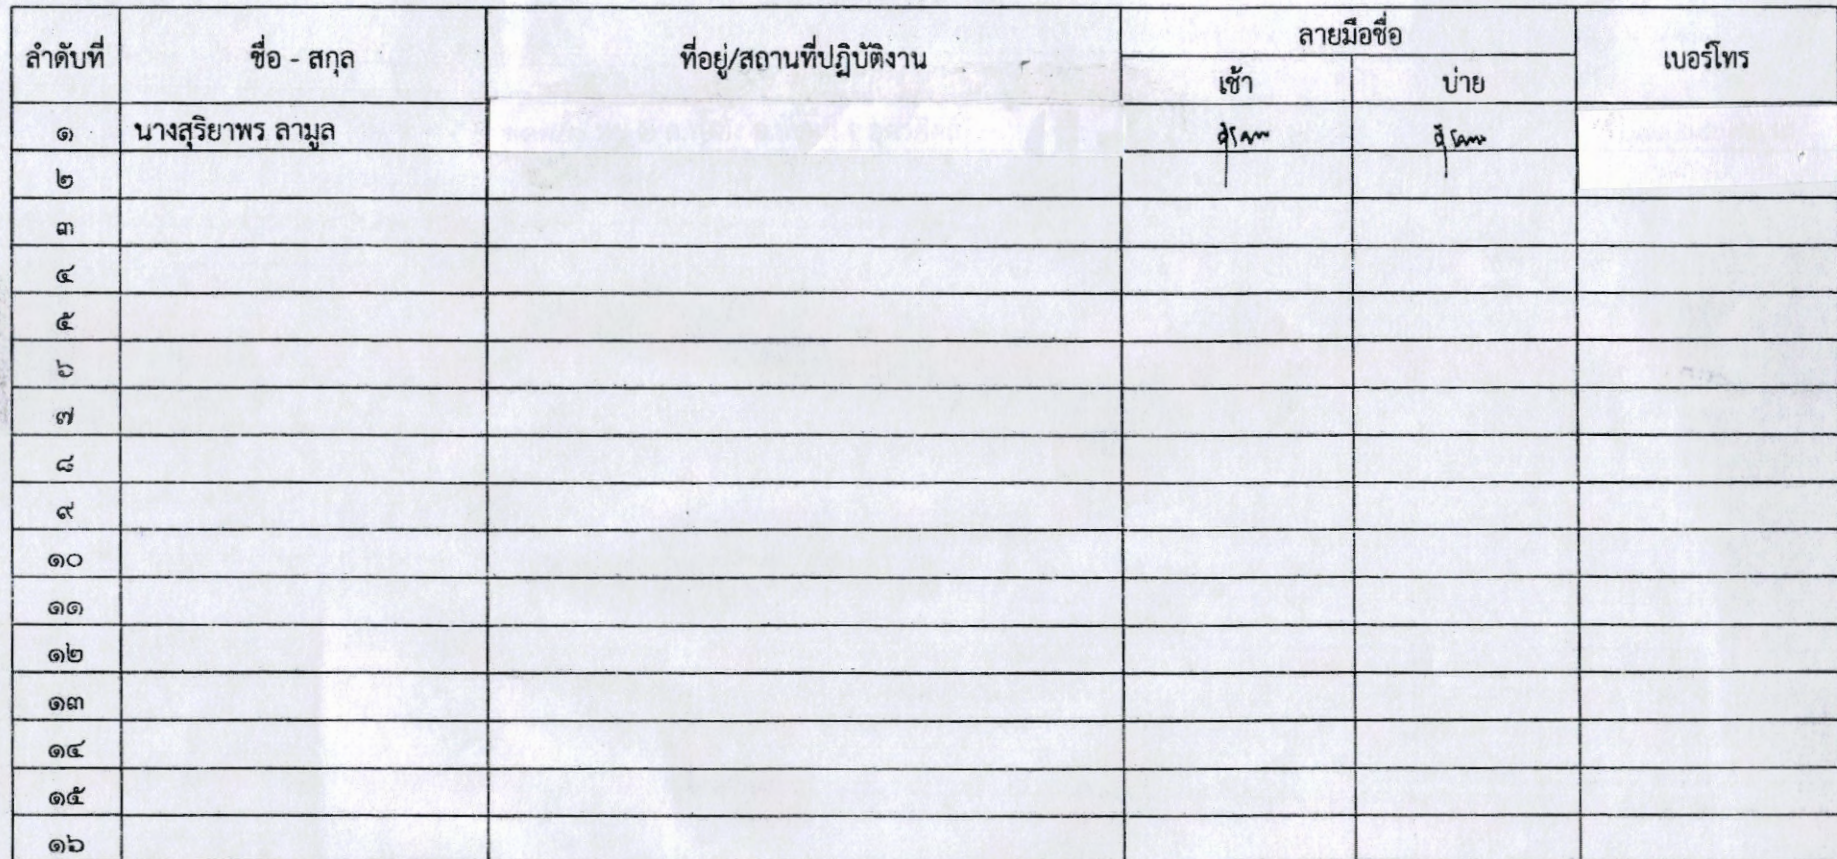 ลำดับที่ ชื่อ - สกุล ที่อยู่/สถานที่ปฏิบัติงาน ลายมือชื่อ เบอร์โทร
เช้า บ่าย
๑ นางสุริยาพร ลามูล
๒
๓
๔
๕
๖
๗
๘
๙
๑๐
๑๑
๑๒
๑๓
๑๔
๑๕
๑๖